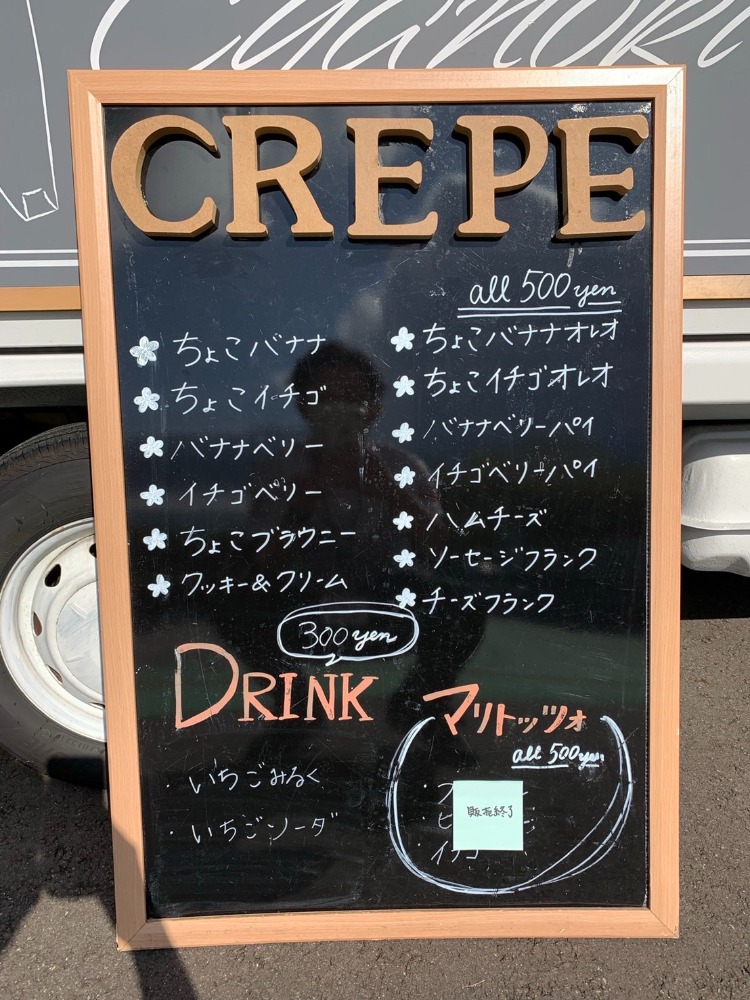 CREPE
all 500yen
ちょこバナナ
ちょこイチゴ
バナナベリー
イチゴベリー
ちょこブラウニー
クッキー&クリーム
ちょこバナナオレオ
ちょこイチゴオレオ
バナナベリーパイ
イチゴベリーパイ
ハムチーズ
ソーセージフランク
チーズフランク
300yen
DRINK
・いちごみるく
・いちごソーダ
マリトッツォ
all 500yen
販売終了